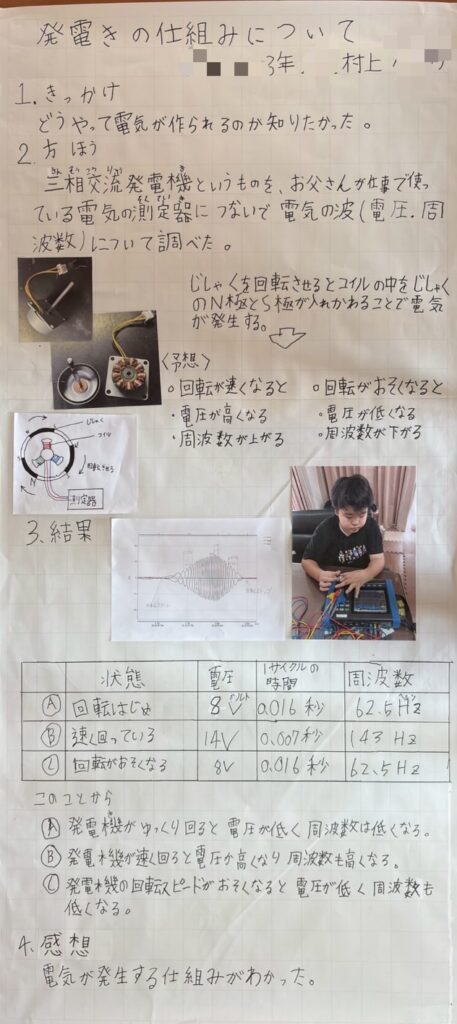 発電きの仕組みについて
3年. . 村上
1. きっかけ
どうやって電気が作られるのか知りたかった。
2. 方ほう
三相交流発電機というものを、お父さんが仕事で使っ
ている電気の測定器につないで電気の波(電圧・周
波数)について調べた。
じしゃくを回転させるとコイルの中をじしゃく
のN極とS極が入れかわることで電気
が発生する。
〈予想〉
・回転が速くなると
・電圧が高くなる
・周波数が上がる
・回転がおそくなると
・電圧が低くなる
・周波数が下がる
じしゃく
コイル
回転させる
N
測定器
3. 結果
状態 電圧 1サイクルの時間 周波数
Ⓐ 回転はじめ 8V ボルト 0.016秒 62.5Hz ヘルツ
Ⓑ 速く回っている 14V 0.007秒 143Hz
Ⓒ 回転がおそくなる 8V 0.016秒 62.5Hz
このことから
Ⓐ 発電機がゆっくり回ると電圧が低く周波数は低くなる。
Ⓑ 発電機が速く回ると電圧が高くなり周波数も高くなる。
Ⓒ 発電機の回転スピードがおそくなると電圧が低く周波数も
低くなる。
4. 感想
電気が発生する仕組みがわかった。